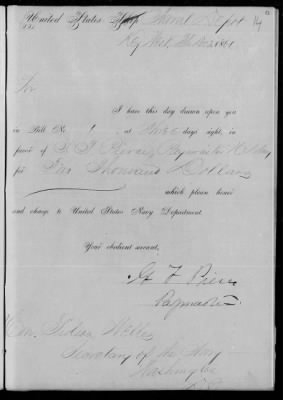 United States Naval Depot 14
Key West Fla 1861
Sir
I have this day drawn upon you
in Bill No 1 at three days sight, in
favor of Paymaster U.S. Navy
for Thousand Dollars
which please honor
and charge to United States Navy Department.
Your obedient servant,
Paymaster
Hon. Gideon Welles
Secretary of the Navy
Washington